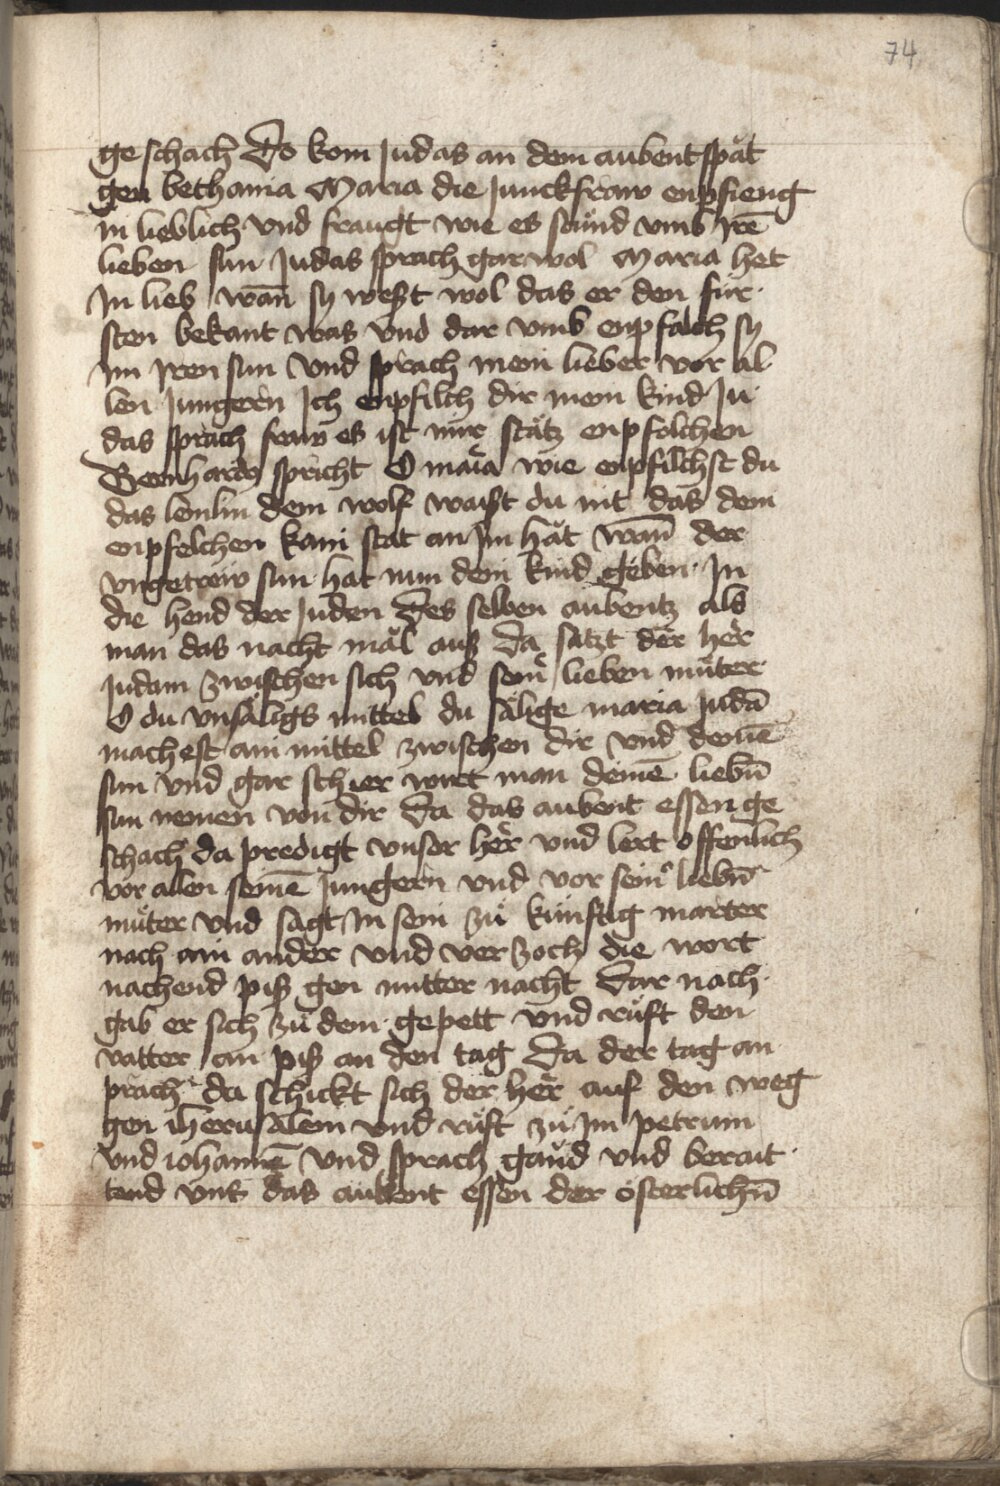 74
ge schach Do kom Judas an dem aubent spät
gen bethania Maria die Junckfraw enpfieng
in lieblich vnd fraugt wie es stünd vmb Jrē
lieben sun Judas sprach gar wol Maria het
Jn lieb wan̄ sy west wol das er den für
sten bekant was vnd dar vmb enpfalch sy
im Jren sun Vnd sprach mein lieber vor al
len Jungern Jch enpfilch dir mein kind Ju
das sprach fraw es ist mir stätz enpfolchen
Bernhardꝰ spricht O maria wie enpfilchst du
das lemlin dem wolf waist du nit das dem
enpfelchen kain stat an Jm hät wan̄ der
vngetrew sun hat nun dein kind geben Jn
die hend der Juden Des selben aubentz als
man das nacht mäl aus Da satzt der her
Judam zwischen sich vnd seinr lieben müter
O du vnsäligs mittel du sälige maria Judā
machest ain mittel zwischen dir vnd deinē
sun vnd gar schier wirt man deinē liebn̄
sun nemen von dir Da das aubent essen ge
schach da predigt vnser her vnd lert offenlich
vor allen seinē Jungern vnd vor seinr liebn̄
müter vnd sagt Jn sein zü künftig marter
nach ain ander vnd ver zoch die wort
nachend piß gen mitter nacht Dar nach
gab er sich zü dem gepett vnd rüft den
vatter an piß an den tag Da der tag an
prach da schickt sich der her auf den weg
gen iherusalem vnd rüft zü Jm petrum
vnd iohannē vnd sprach gaüd vnd berait
tend vns das aubent essen der österlichn̄